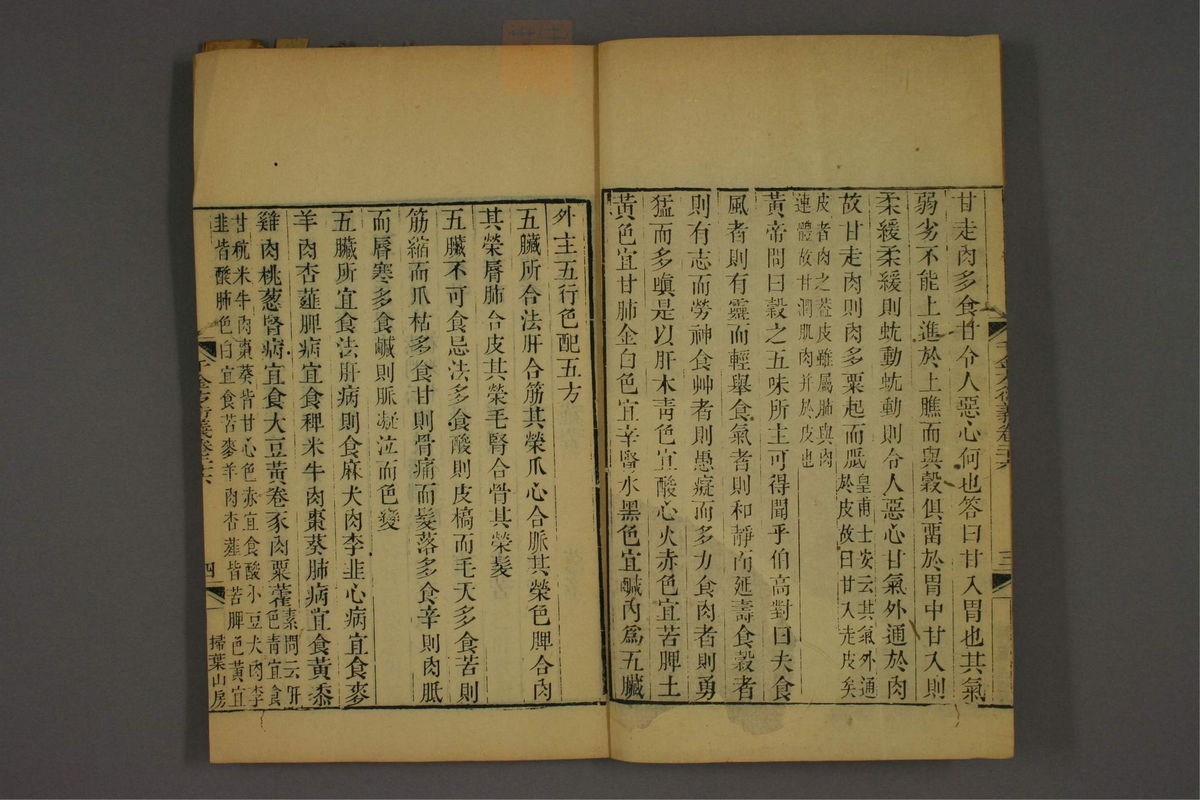 甘走肉多食甘令人惡心何也答曰甘入胃也其氣
弱劣不能上進於上膲而與穀俱留於胃中甘入則
柔緩柔緩則蚘動蚘動則令人惡心甘氣外通於肉
故甘走肉則肉多粟起而胝皇甫士安云其氣外通
於皮故曰甘入走皮矣
皮者肉之葢皮雖屬肺與肉
連體故甘潤肌肉并於皮也
黃帝問曰穀之五味所主可得聞乎伯高對曰夫食
風者則有靈而輕舉食氣者則和靜而延壽食穀者
則有志而勞神食艸者則愚癡而多力食肉者則勇
猛而多嗔是以肝木靑色宜酸心火赤色宜苦脾土
黃色宜甘肺金白色宜辛腎水黑色宜鹹內爲五臟
三
外主五行色配五方
五臟所合法肝合筋其榮爪心合脈其榮色脾合肉
其榮脣肺合皮其榮毛腎合骨其榮髮
五臟不可食忌法多食酸則皮槁而毛夭多食苦則
筋縮而爪枯多食甘則骨痛而髮落多食辛則肉胝
而脣寒多食鹹則脈凝泣而色變
五臟所宜食法肝病宜食麻犬肉李韭心病宜食麥
羊肉杏薤脾病宜食稗米牛肉棗葵肺病宜食黃黍
雞肉桃葱腎病宜食大豆黃卷豕肉粟藿素問云肝
色靑宜食
甘秔米牛肉棗葵皆甘心色赤宜食酸小豆犬肉李
韭皆酸肺色白宜食苦麥羊肉杏薤皆苦脾色黃宜
四
掃葉山房